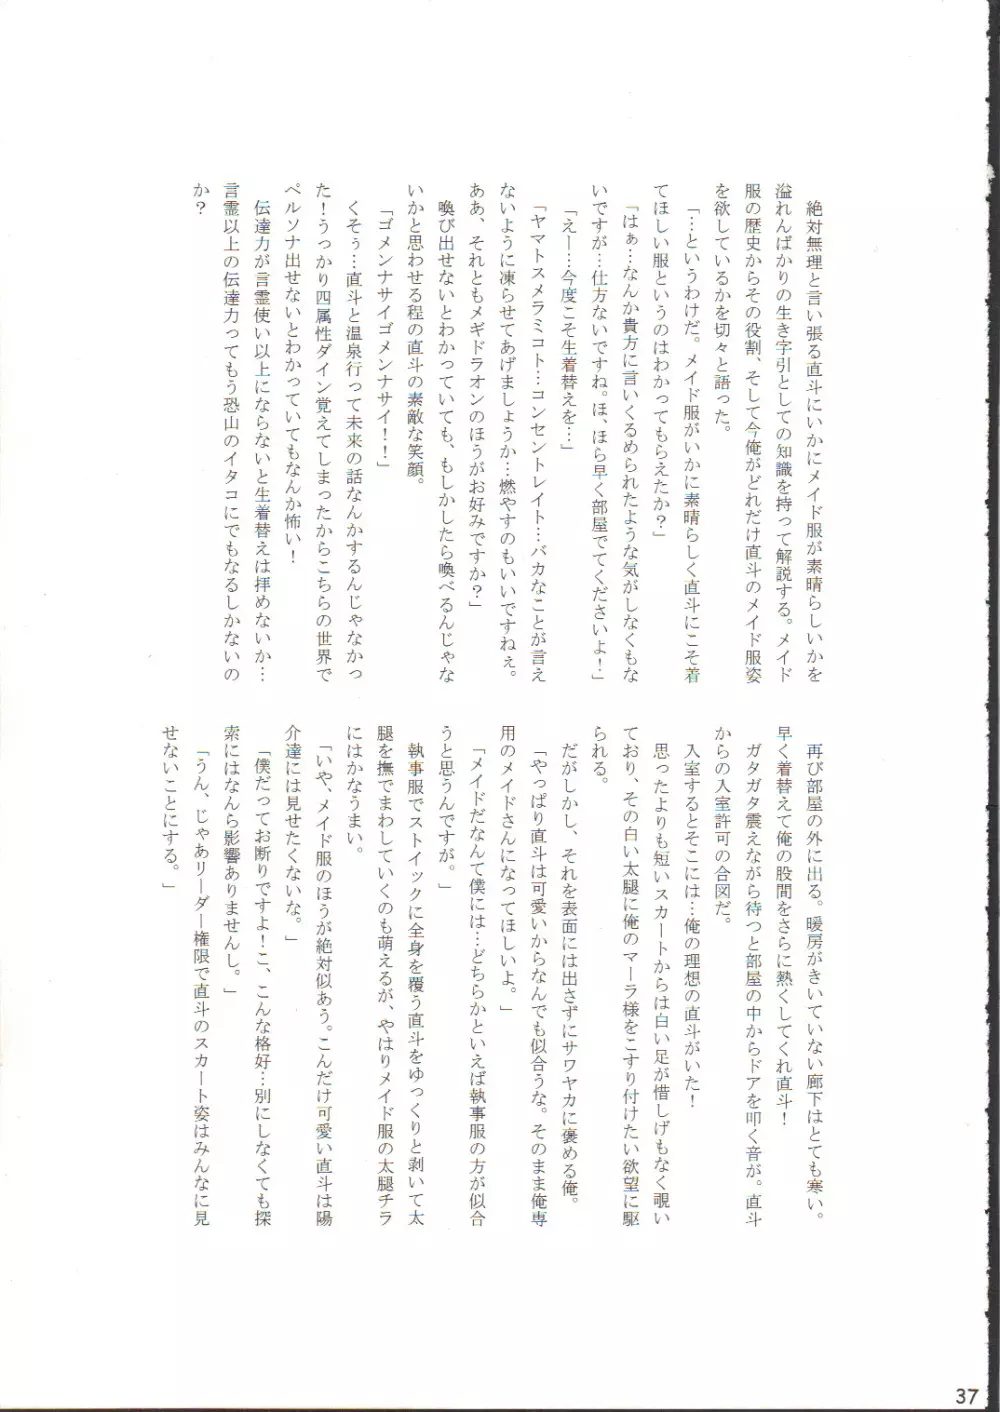 絶対無理と言い張る直斗にいかにメイド服が素晴らしいかを
溢れんばかりの生き字引としての知識を持って解説する。メイド
服の歴史からその役割、そして今俺がどれだけ直斗のメイド服姿
を欲しているかを切々と語った。
　「…というわけだ。メイド服がいかに素晴らしく直斗にこそ着
てほしい服というのはわかってもらえたか？」
　「はぁ…なんか貴方に言いくるめられたような気がしなくもな
いですが…仕方ないですね。ほ、ほら早く部屋でてくださいよ！」
　「えー…今度こそ生着替えを…」
　「ヤマトスメラミコト…コンセントレイト…バカなことが言え
ないように凍らせてあげましょうか…燃やすのもいいですねぇ。
ああ、それともメギドラオンのほうがお好みですか？」
　喚び出せないとわかっていても、もしかしたら喚べるんじゃな
いかと思わせる程の直斗の素敵な笑顔。
　「ゴメンナサイゴメンナサイ！！」
　くそぅ…直斗と温泉行って未来の話なんかするんじゃなかっ
た！うっかり四属性ダイン覚えてしまったからこちらの世界で
ペルソナ出せないとわかっていてもなんか怖い！
　伝達力が言霊使い以上にならないと生着替えは拝めないか…
言霊以上の伝達力ってもう恐山のイタコにでもなるしかないの
か？
　再び部屋の外に出る。暖房がきいていない廊下はとても寒い。
早く着替えて俺の股間をさらに熱くしてくれ直斗！
　ガタガタ震えながら待つと部屋の中からドアを叩く音が。直斗
からの入室許可の合図だ。
　入室するとそこには…俺の理想の直斗がいた！
　思ったよりも短いスカートからは白い足が惜しげもなく覗い
ており、その白い太腿に俺のマーラ様をこすり付けたい欲望に駆
られる。
　だがしかし、それを表面には出さずにサワヤカに褒める俺。
　「やっぱり直斗は可愛いからなんでも似合うな。そのまま俺専
用のメイドさんになってほしいよ。」
　「メイドだなんて僕には…どちらかといえば執事服の方が似合
うと思うんですが。」
　執事服でストイックに全身を覆う直斗をゆっくりと剥いて太
腿を撫でまわしていくのも萌えるが、やはりメイド服の太腿チラ
にはかなうまい。
　「いや、メイド服のほうが絶対似あう。こんだけ可愛い直斗は陽
介達には見せたくないな。」
　「僕だってお断りですよ！こ、こんな格好…別にしなくても探
索にはなんら影響ありませんし。」
　「うん、じゃあリーダー権限で直斗のスカート姿はみんなに見
せないことにする。」
37